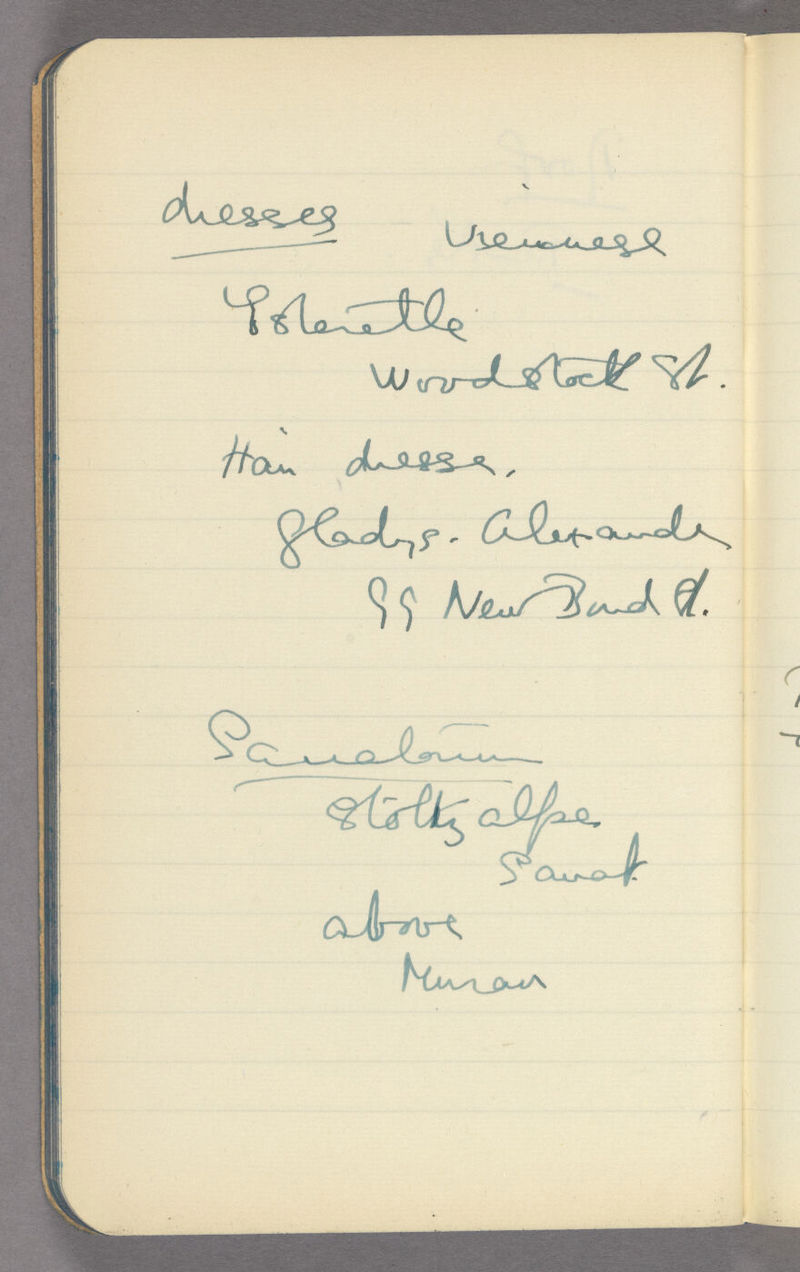 dresses Viennese
Woodstock St.
Hair dresser.
Gladys. Alexander
99 New Bond St.
Sanatorium
Stoltzalpe
Sanat.
above
Murau